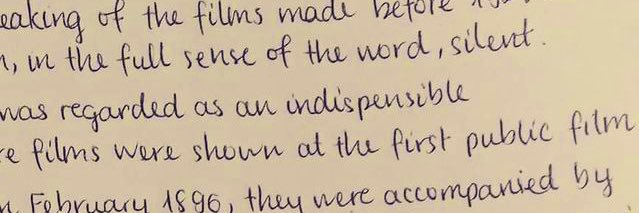 eaking of the films made before
, in the full sense of the word, silent.
was regarded as an indispensible
e films were shown at the first public film
February 1896, they were accompanied by